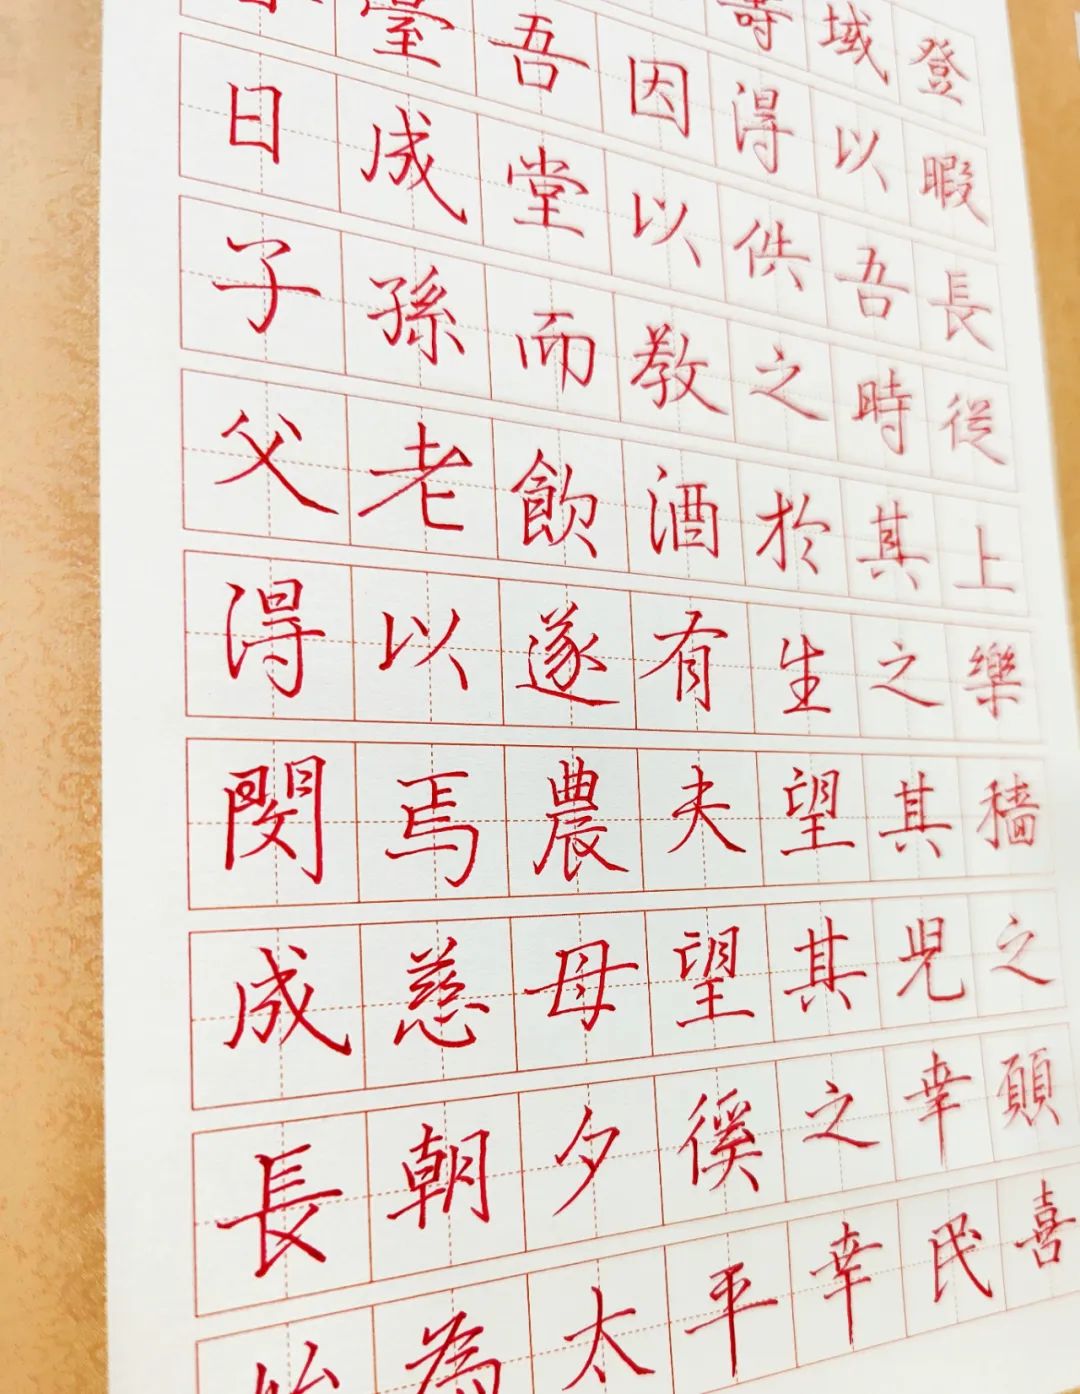 壽域登
臺吾因得以暇
日成堂以供吾長
子孫而教之時從
父老飲酒於其上
得以遂有生之樂
閔焉農夫望其穡
成慈母望其兒之
長朝夕徯之幸願
始為太平幸民喜